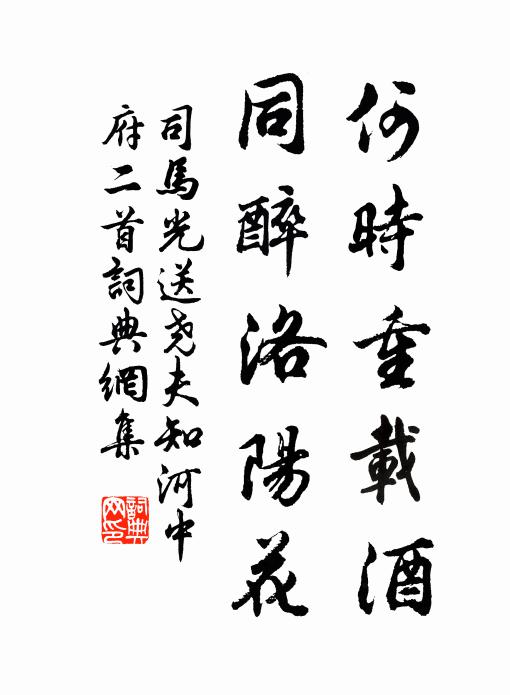 何時重載酒
同醉洛陽花
司馬光送堯夫知河中
府二首詞典網集
詞典
网印